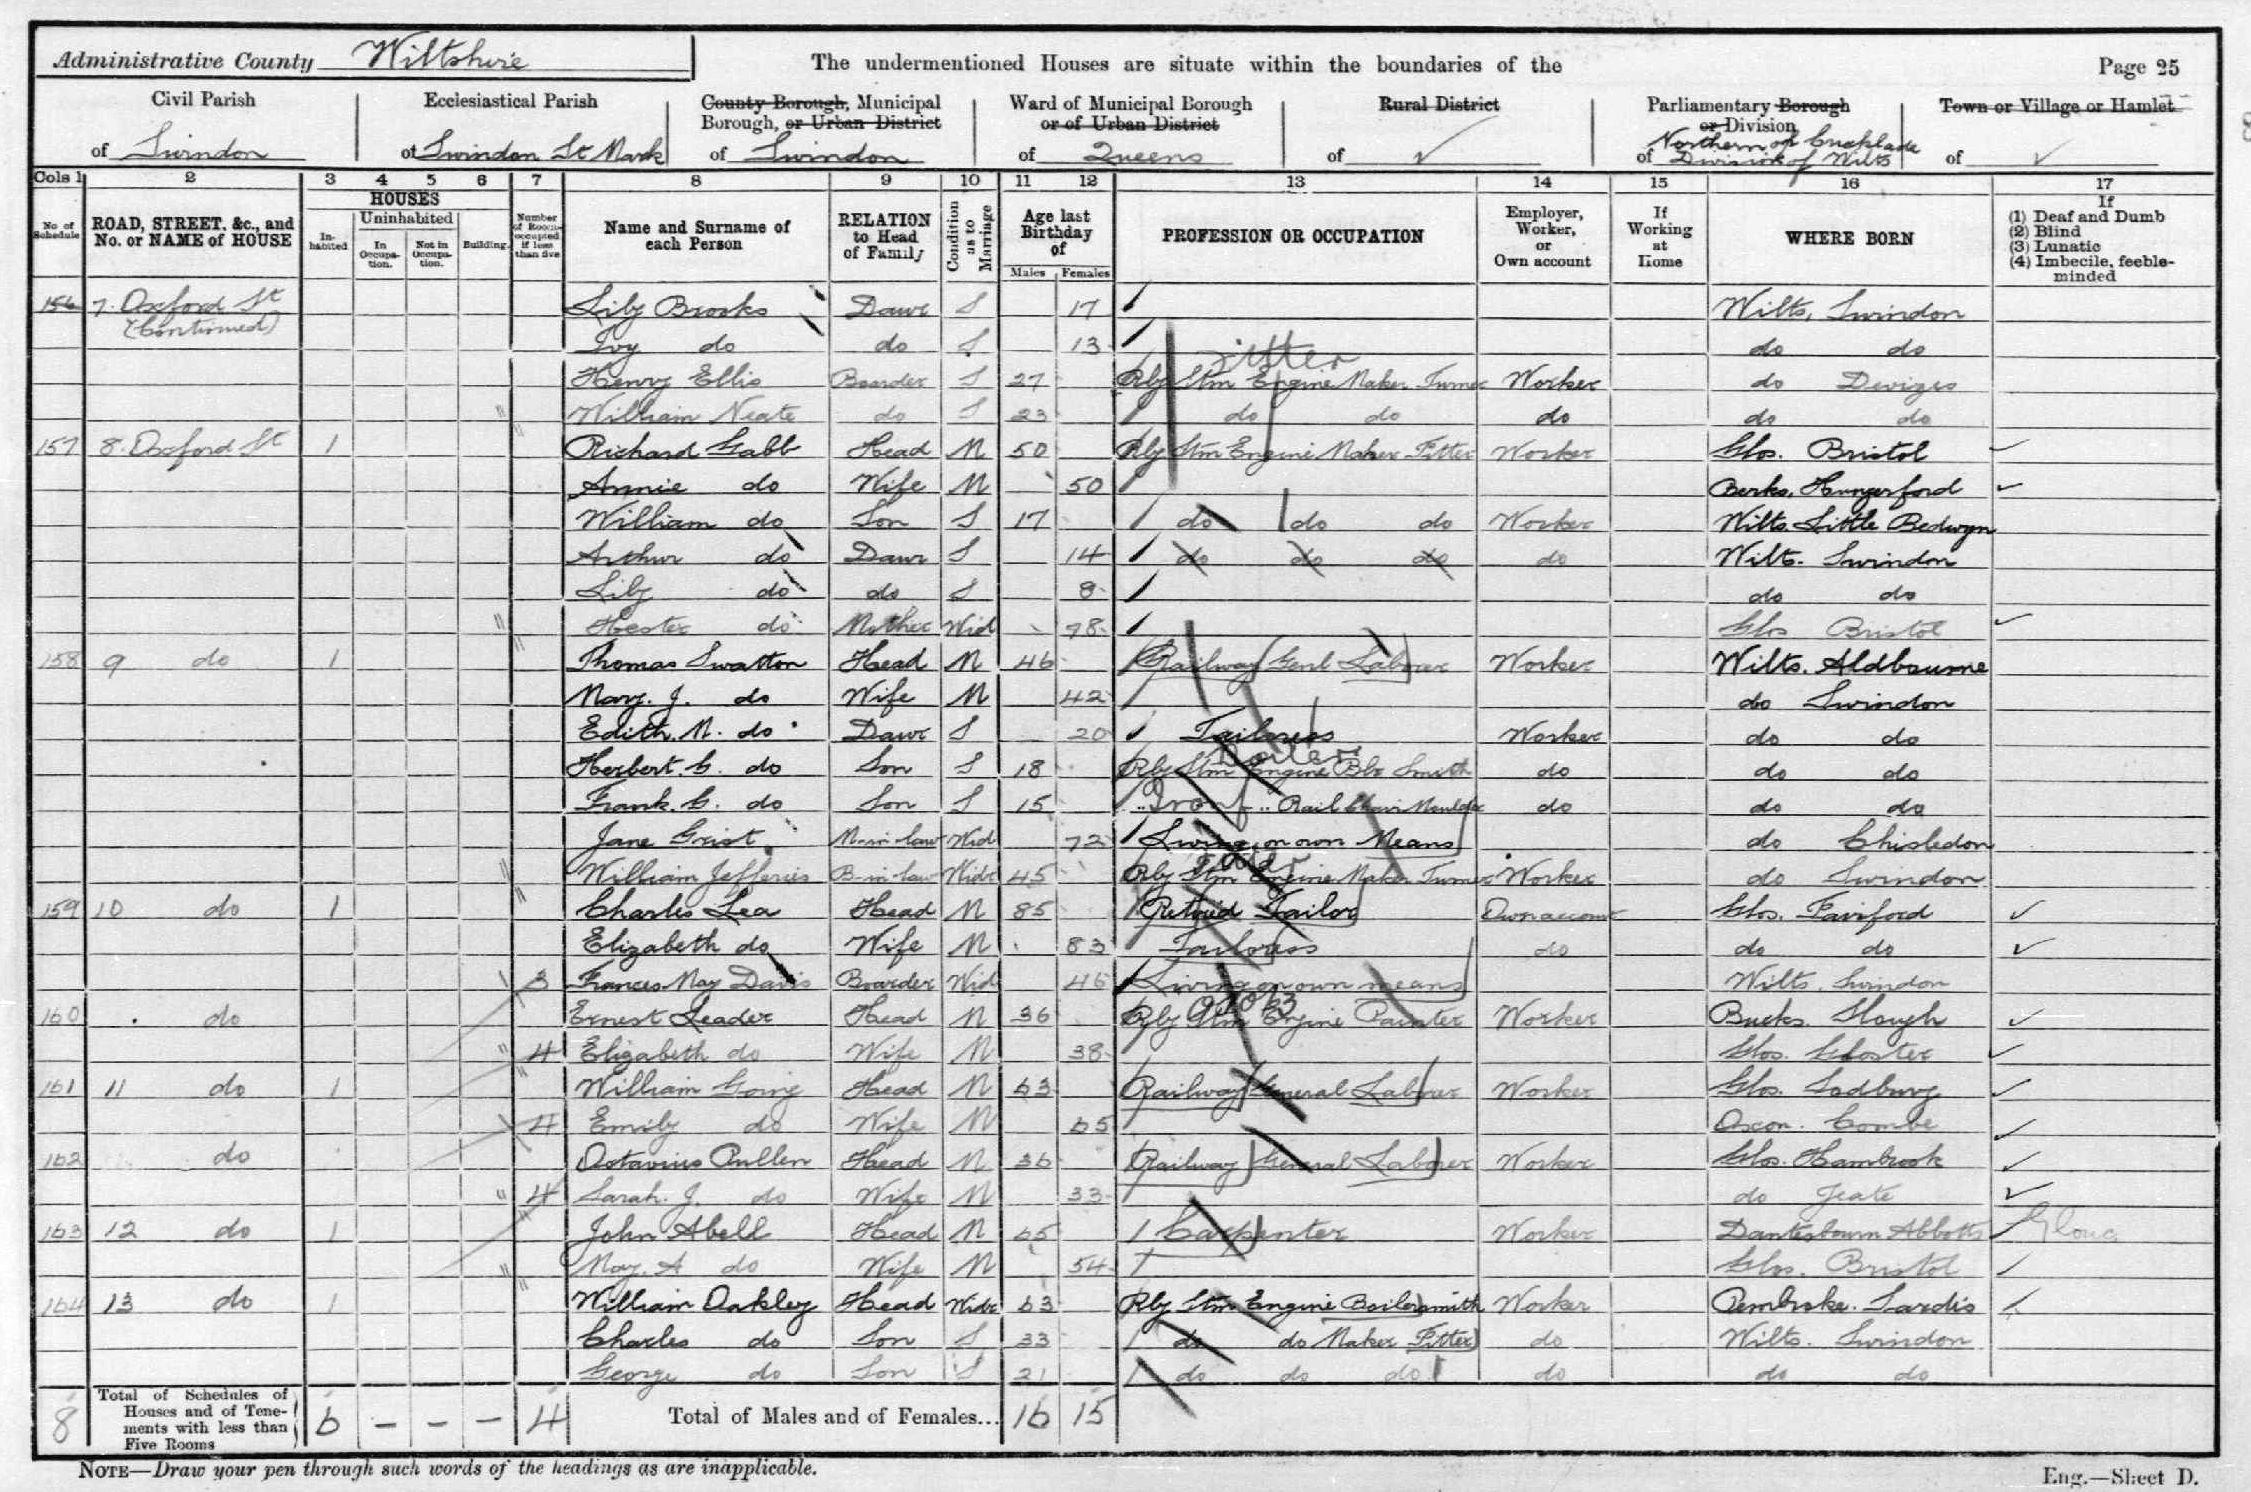 Administrative County Wiltshire
The undermentioned Houses are situate within the boundaries of the
Page 25
Civil Parish of Swindon
Ecclesiastical Parish of Swindon St Mark
County Borough, Municipal Borough, or Urban District of Swindon
Ward of Municipal Borough or of Urban District of Queens
Rural District of ✓
Parliamentary Borough or Division of Northern or Cricklade Division of Wilts
Town or Village or Hamlet of ✓
Cols 1 2 3 4 5 6 7 8 9 10 11 12 13 14 15 16 17
No of Schedule
ROAD, STREET, &c., and No. or NAME of HOUSE
HOUSES
Inhabited
Uninhabited
In Occupation.
Not in Occupation.
Building.
Number of Rooms occupied if less than five
Name and Surname of each Person
RELATION to Head of Family
Condition as to Marriage
Age last Birthday of
Males Females
PROFESSION OR OCCUPATION
Employer, Worker, or Own account
If Working at Home
WHERE BORN
If
(1) Deaf and Dumb
(2) Blind
(3) Lunatic
(4) Imbecile, feeble-minded
156 7. Oxford St Lily Brooks Daur S 17 Wilts, Swindon
(Continued) Ivy do do S 13 do do
Henry Ellis Boarder S 27 Rly Stm Engine Maker Turner Fitter Worker do Devizes
William Neate do S 23 do do do do do
157 8. Oxford St 1 Richard Gabb Head M 50 Rly Stm Engine Maker Fitter Worker Glos. Bristol
Annie do Wife M 50 Berks, Hungerford
William do Son S 17 do do do Worker Wilts Little Bedwyn
Arthur do Daur S 14 do do do do Wilts. Swindon
Lily do do S 8 do do
Hester do Mother Wid 78 Glos Bristol
158 9 do 1 Thomas Swatton Head M 46 Railway Genl Laborer Worker Wilts. Aldbourne
Mary. J. do Wife M 42 do Swindon
Edith. M. do Daur S 20 Tailoress Worker do do
Herbert. C. do Son S 18 Rly Stm Engine Blr Smith Boiler do do do
Frank. C. do Son S 15 " Iron " Rail Chair Moulder do do do
Jane Grist M-in-law Wid 72 Living on own Means do Chisledon
William Jefferies B-in-law Widr 45 Rly Stm Engine Maker Turner Worker do Swindon
159 10 do 1 Charles Lea Head M 85 Retired Tailor Own account Glos. Fairford
Elizabeth do Wife M 83 Tailoress do do do
3 Frances May Davis Boarder Wid 46 Living on own means Wilts, Swindon
160 do Ernest Leader Head M 36 Rly Stm Engine Painter Worker Bucks. Slough
4 Elizabeth do Wife M 38 Glos. Gloster
161 11 do 1 William Going Head M 63 Railway General Laborer Worker Glos. Sodbury
4 Emily do Wife M 65 Oxon. Combe
162 do Octavius Pullen Head M 36 Railway General Laborer Worker Glos. Hambrook
4 Sarah. J. do Wife M 33 do Yeate
163 12 do 1 John Abell Head M 65 Carpenter Worker Dantesbourn Abbotts Glouc
May. A do Wife M 54 Glos. Bristol
164 13 do 1 William Oakley Head Widr 63 Rly Stm Engine Boilersmith Worker Pembroke. Sardis
Charles do Son S 33 do do Maker Fitter do Wilts. Swindon
George do Son S 21 do do do do do do
8 Total of Schedules of Houses and of Tenements with less than Five Rooms 6 – – – 4 Total of Males and of Females... 16 15
NOTE—Draw your pen through such words of the headings as are inapplicable.
Eng.—Sheet D.